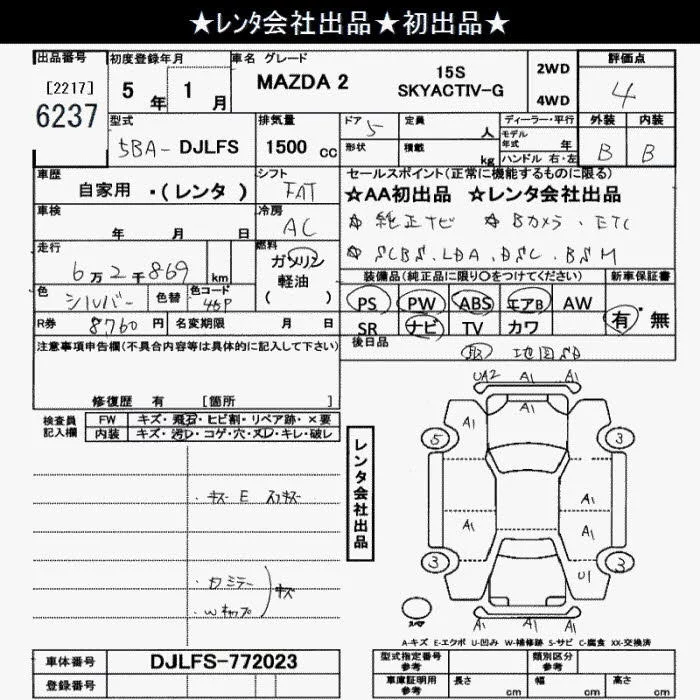 ★レンタ会社出品★初出品★
出品番号 初度登録年月 車名 グレード 評価点
[2217] 6237
5年 1月
MAZDA 2 15S SKYACTIV-G
2WD
4WD
4
型式 排気量 ドア 定員 ディーラー・平行 外装 内装
5BA- DJLFS 1500 cc 5 人
モデル年式 年
形状 積載 kg ハンドル 右・左
B B
車歴 シフト セールスポイント(正常に機能するものに限る)
自家用 ・(レンタ) FAT
★AA初出品 ★レンタ会社出品
車検 年 月 日 冷房 AC
☆ 純正ナビ ☆ Bカメラ . ETC
☆ SCBS . LDA . DSC . BSM
走行 6万2千869 km
燃料 ガソリン 軽油 ( )
装備品(純正品に限り○をつけてください) 新車保証書
色 シルバー 色替 色コード 45P
PS PW ABS エアB AW
SR ナビ TV カワ
有・無
R券 8760円 名変期限 月 日
後日品
取 地図SD
注意事項申告欄(不具合内容等は具体的に記入して下さい)
修復歴 有 [箇所
検査員記入欄
FW キズ・飛石・ヒビ割・リペア跡・×要
内装 キズ・汚レ・コゲ・穴・ヌレ・キレ・破レ
UA2 A1 A1
A1 A1
5 3
レンタ会社出品
・キズ E スリキズ
A1
A1 A1
3 3
U1
・カミテー
・Wキャップ
キズ
A1 A1 A1
A-キズ E-エクボ U-凹み W-補修跡 S-サビ C-腐食 XX-交換済
車体番号 DJLFS-772023
型式指定番号 参考 類別区分 参考
登録番号
車庫証明用 参考 長さ cm 幅 cm 高さ cm